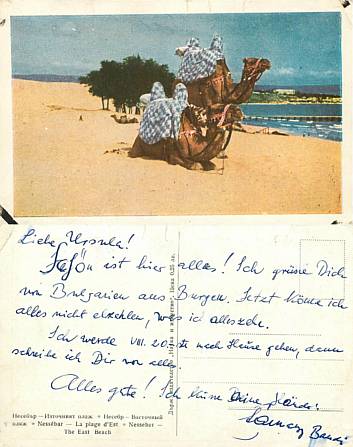 Liebe Ursula!
Schön ist hier alles! Ich grüsse Dich
von Bulgarien aus Burgen. Jetzt könne ich
alles nicht elzehlen, was ich alles zehe.
Ich werde VIII. 20. nach Hause gehen, dann
schreibe ich Dir von alles.
Alles gute! Ich küsse Deine Hände:
Несебър — Източният плаж • Несебр — Восточный
пляж • Nessébar — La plage d'Est • Nesseber —
The East Beach